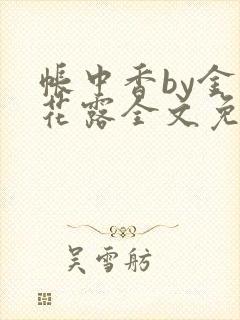 帐中香by金
花露全文免
吴雪舫